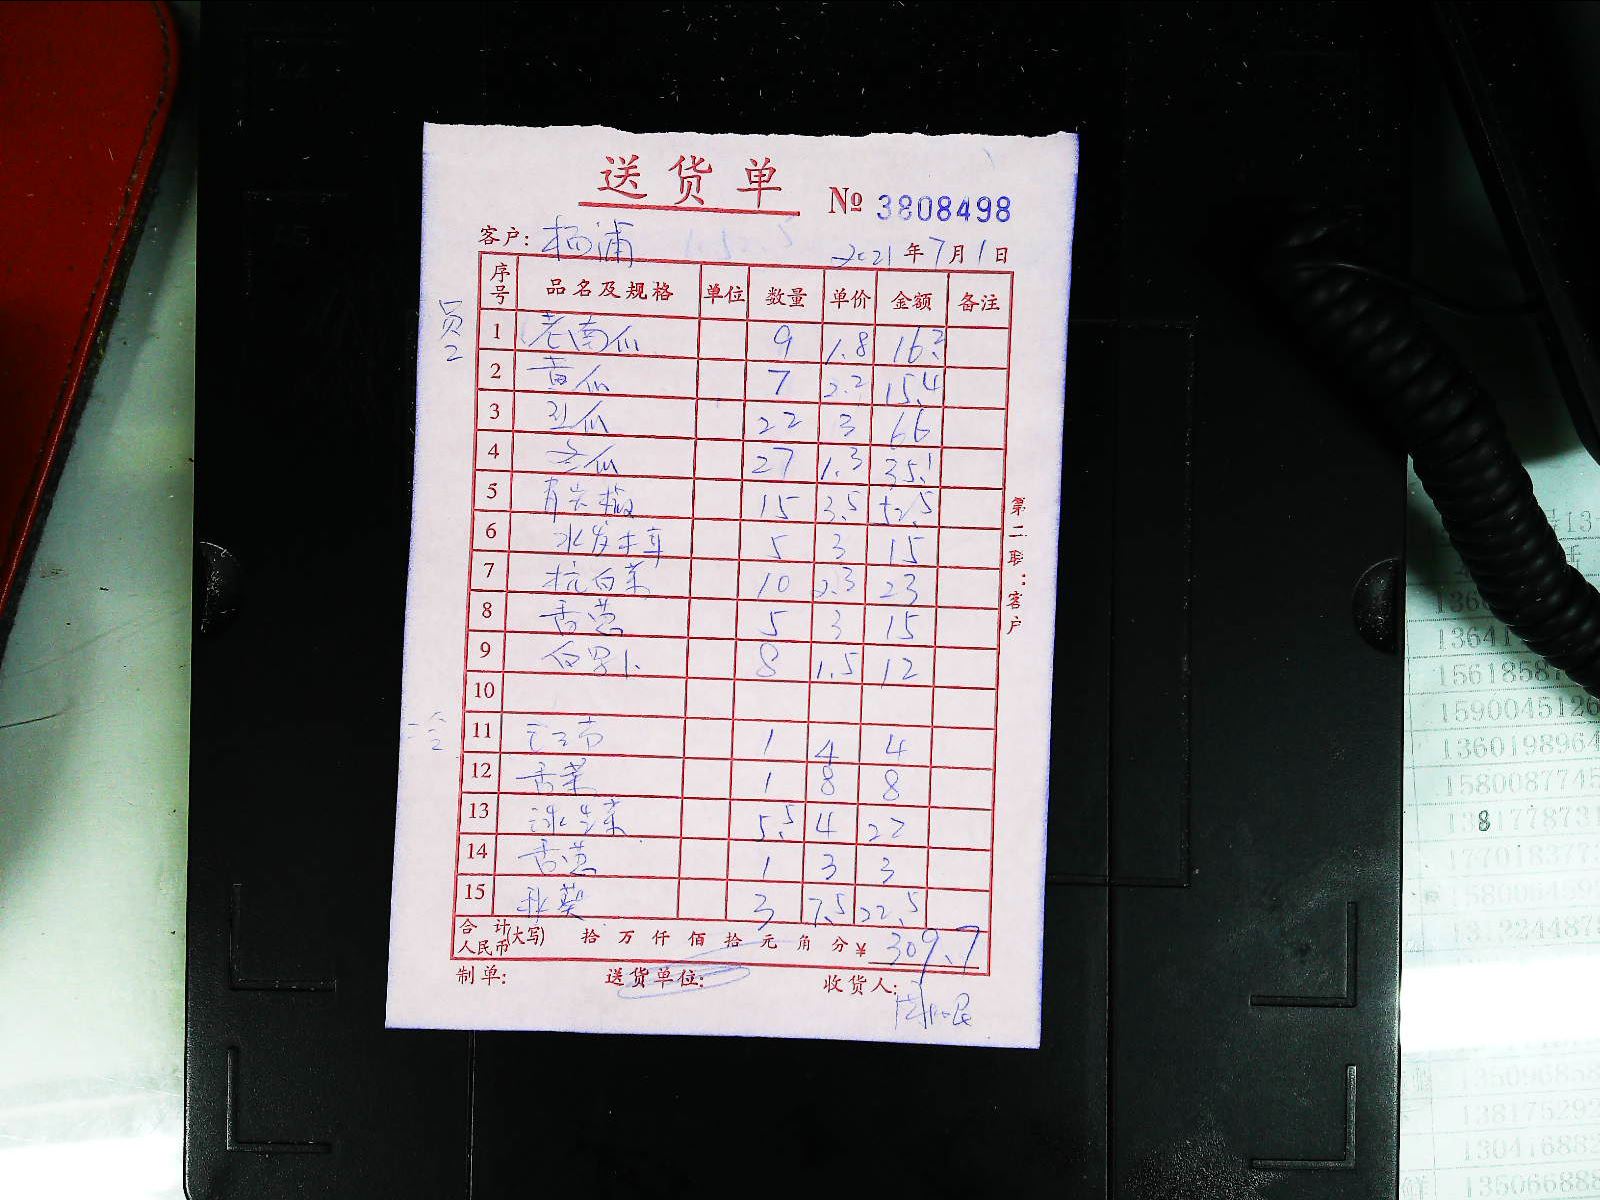 送货单 № 3808498
客户: 杨浦 2021年7月1日
序号 品名及规格 单位 数量 单价 金额 备注
员工
1 老南瓜 9 1.8 16.2
2 黄瓜 7 2.2 15.4
3 22 3 66
4 冬瓜 27 1.3 35.1
5 15 3.5 52.5
6 水发木耳 5 3 15
7 杭白菜 10 2.3 23
8 香葱 5 3 15
9 白罗卜 8 1.5 12
10
11 1 4 4
12 香菜 1 8 8
13 球生菜 5.5 4 22
14 香葱 1 3 3
15 秋葵 3 7.5 22.5
合计人民币(大写) 拾万仟佰拾元角分 ¥ 309.7
制单: 送货单位: 收货人:
第二联:客户
15618587
1590045126
1360198964
1580087745